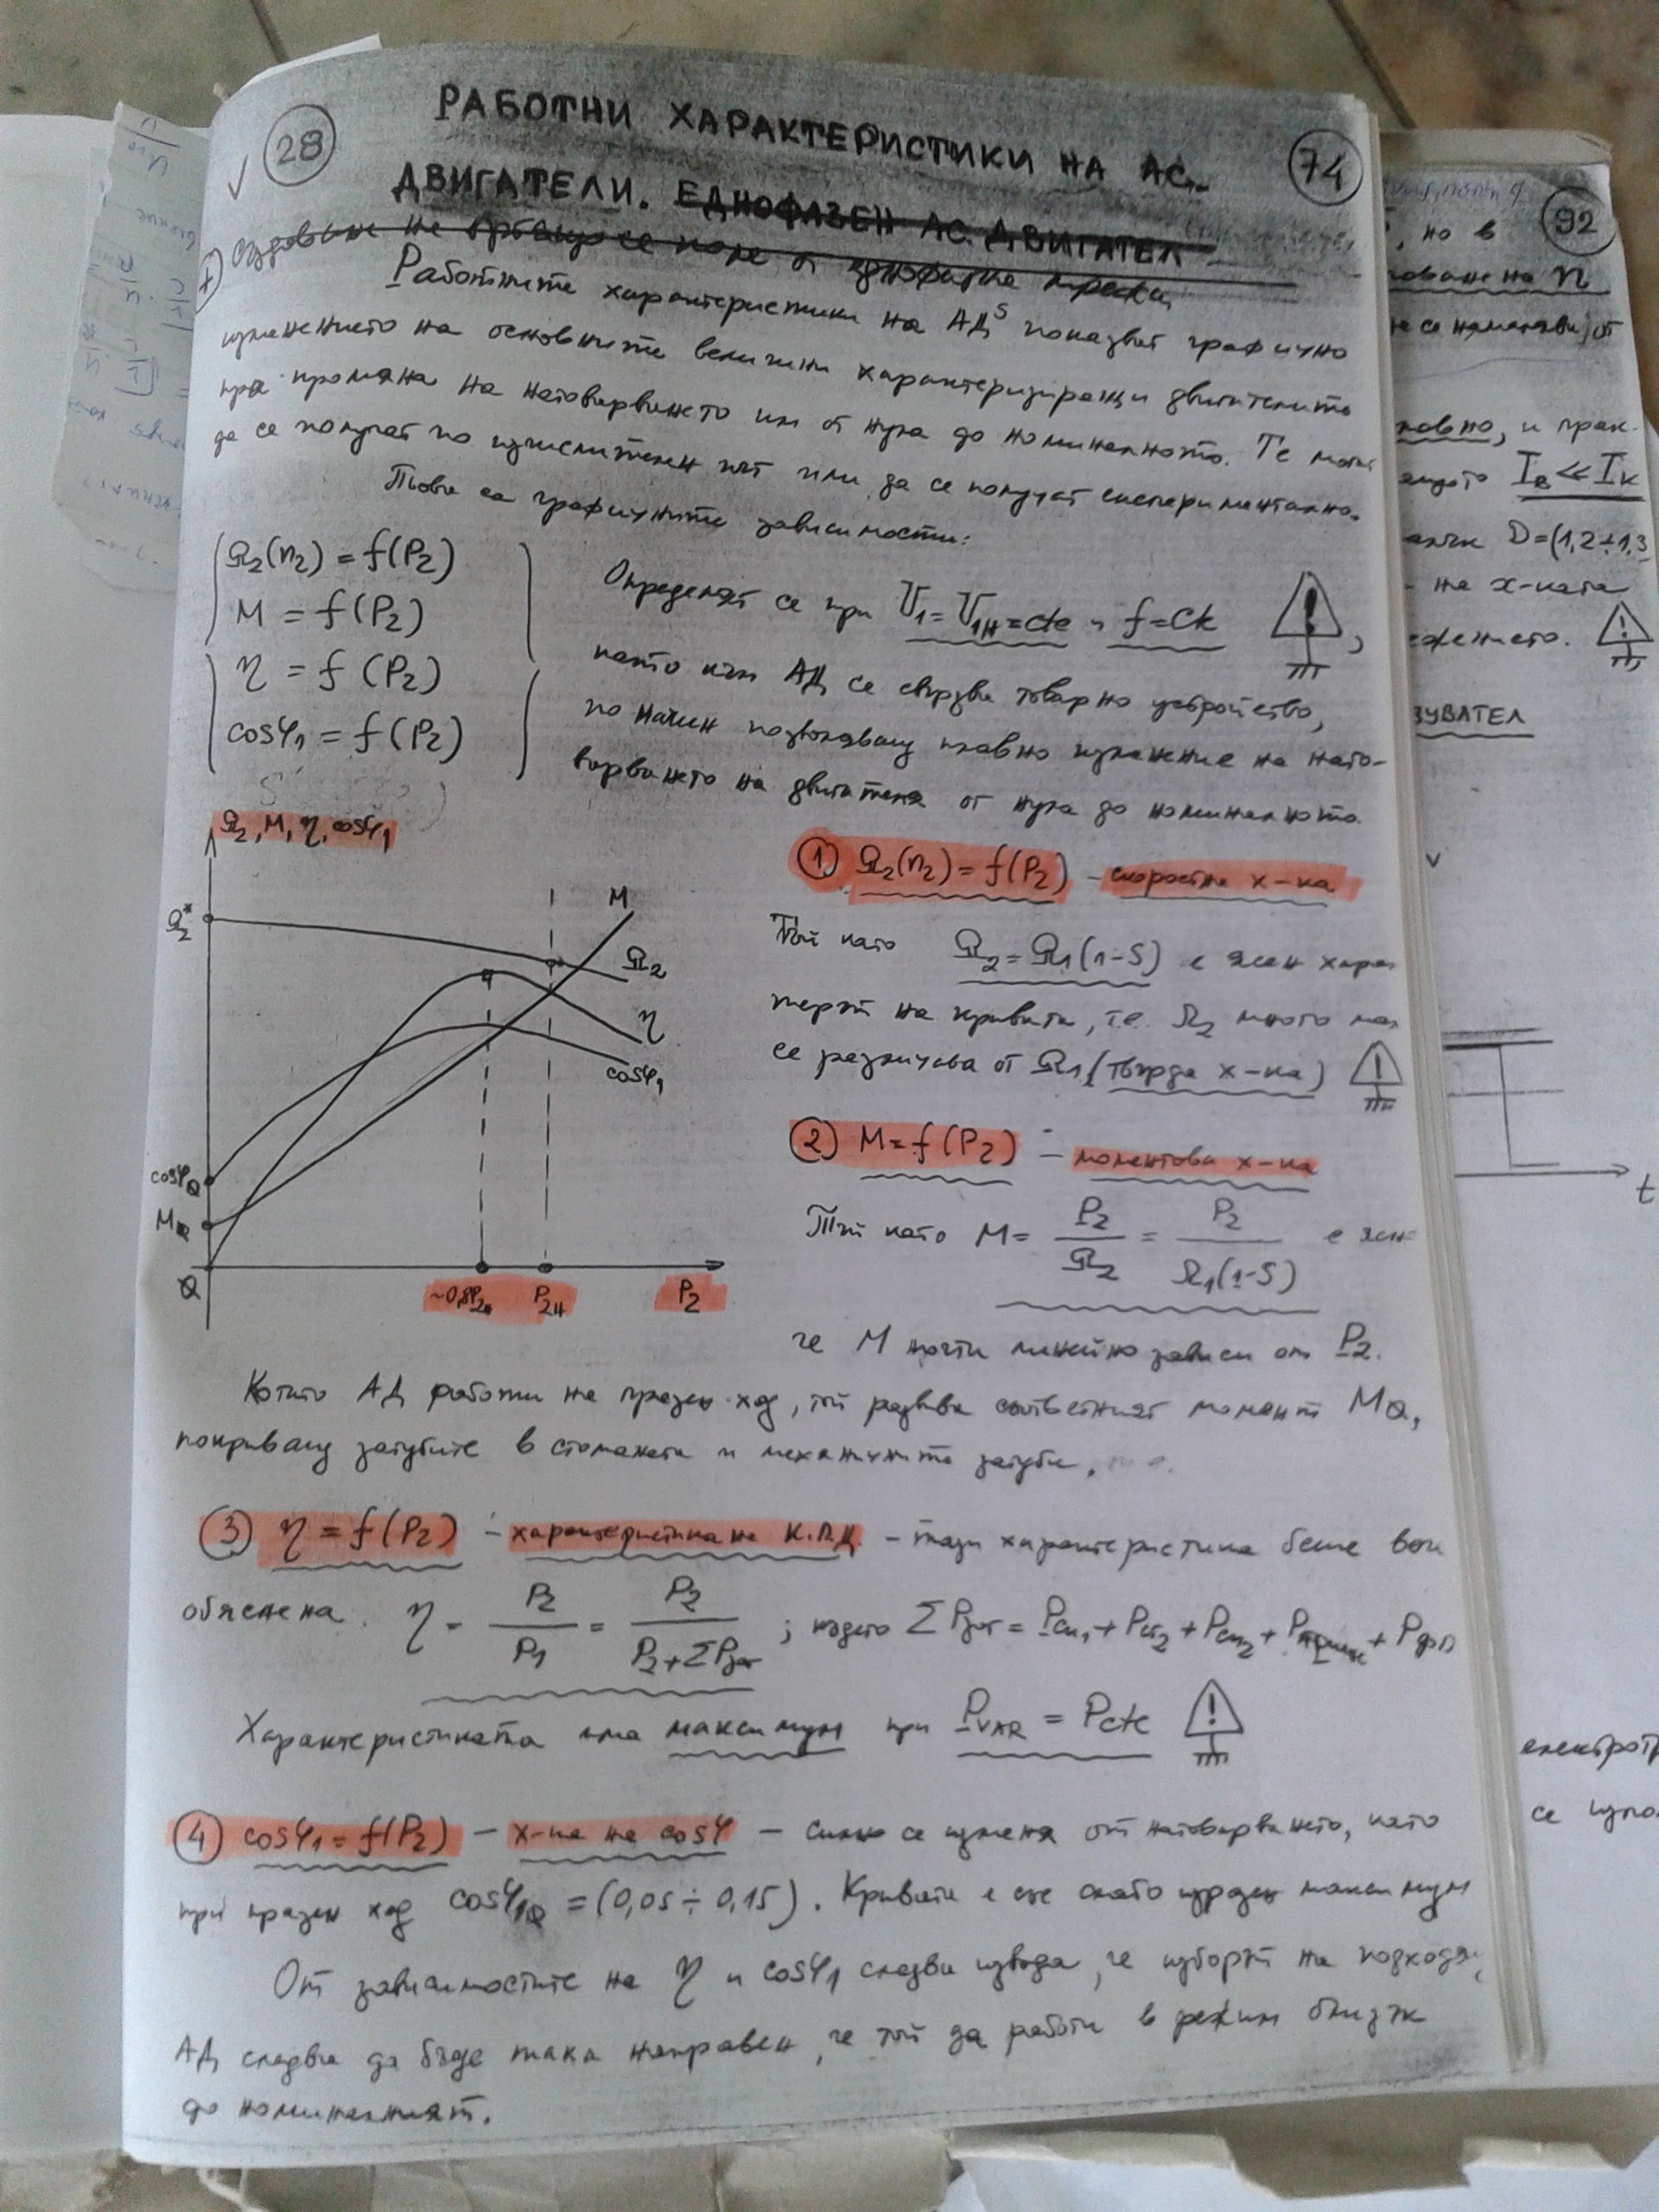 28
РАБОТНИ ХАРАКТЕРИСТИКИ НА АС.
74
ДВИГАТЕЛИ. ЕДНОФАЗЕН АС. ДВИГАТЕЛ
Създаване на въртящо се поле от еднофазна мрежа
Работните характеристики на АДS показват графично
изменението на основните величини характеризиращи двигателите
при промяна на натоварването им от нула до номиналното. Те мога
да се получат по изчислителен път или да се получат експериментално.
Това са графичните зависимости:
Ω2(n2) = f(P2)
M = f(P2)
η = f(P2)
cosφ1 = f(P2)
Определят се при U1=U1H=cte и f=cte
като към АД се свързва товарно устройство,
по начин позволяващ плавно изменение на нато-
варването на двигателя от нула до номиналното
Ω2, M, η, cosφ1
Ω2*
M
Ω2
η
cosφ1
cosφ0
M0
0
~0,8P2н
P2H
P2
1) Ω2(n2) = f(P2) - скоростна х-ка
Тъй като Ω2=Ω1(1-S) е ясен харак
терът на кривата, т.е. Ω2 много мал
се различава от Ω1 (твърда х-ка)
2) M=f(P2) - моментова х-ка
Тъй като M= P2/Ω2 = P2/Ω1(1-S) е ясно
че M почти линейно зависи от P2.
Когато АД работи на празен ход, той развива съответният момент M0,
покриващ загубите в стоманата и механичните загуби,
3) η = f(P2) - характеристика на К.П.Д. - тази характеристика беше вече
обяснена. η = P2/P1 = P2/P2+ΣPзаг ; където ΣPзаг = Pсм1+Pст2+Pсм2+ +Pдоп
Характеристиката има максимум при PVAR = Pcte
4) cosφ1=f(P2) - х-ка на cosφ - силно се изменя от натоварването, като
при празен ход cosφ10 =(0,05÷0,15). Кривата е със слабо изразен максимум
От зависимостите на η и cosφ1 следва извода, че изборът на подходящ
АД следва да бъде така направен, че той да работи в режим близък
до номиналният.
92
, но в
на n
се намалява) от
и прак-
IB << IK
D=(1,2÷1,3
- на х-ката
t
се